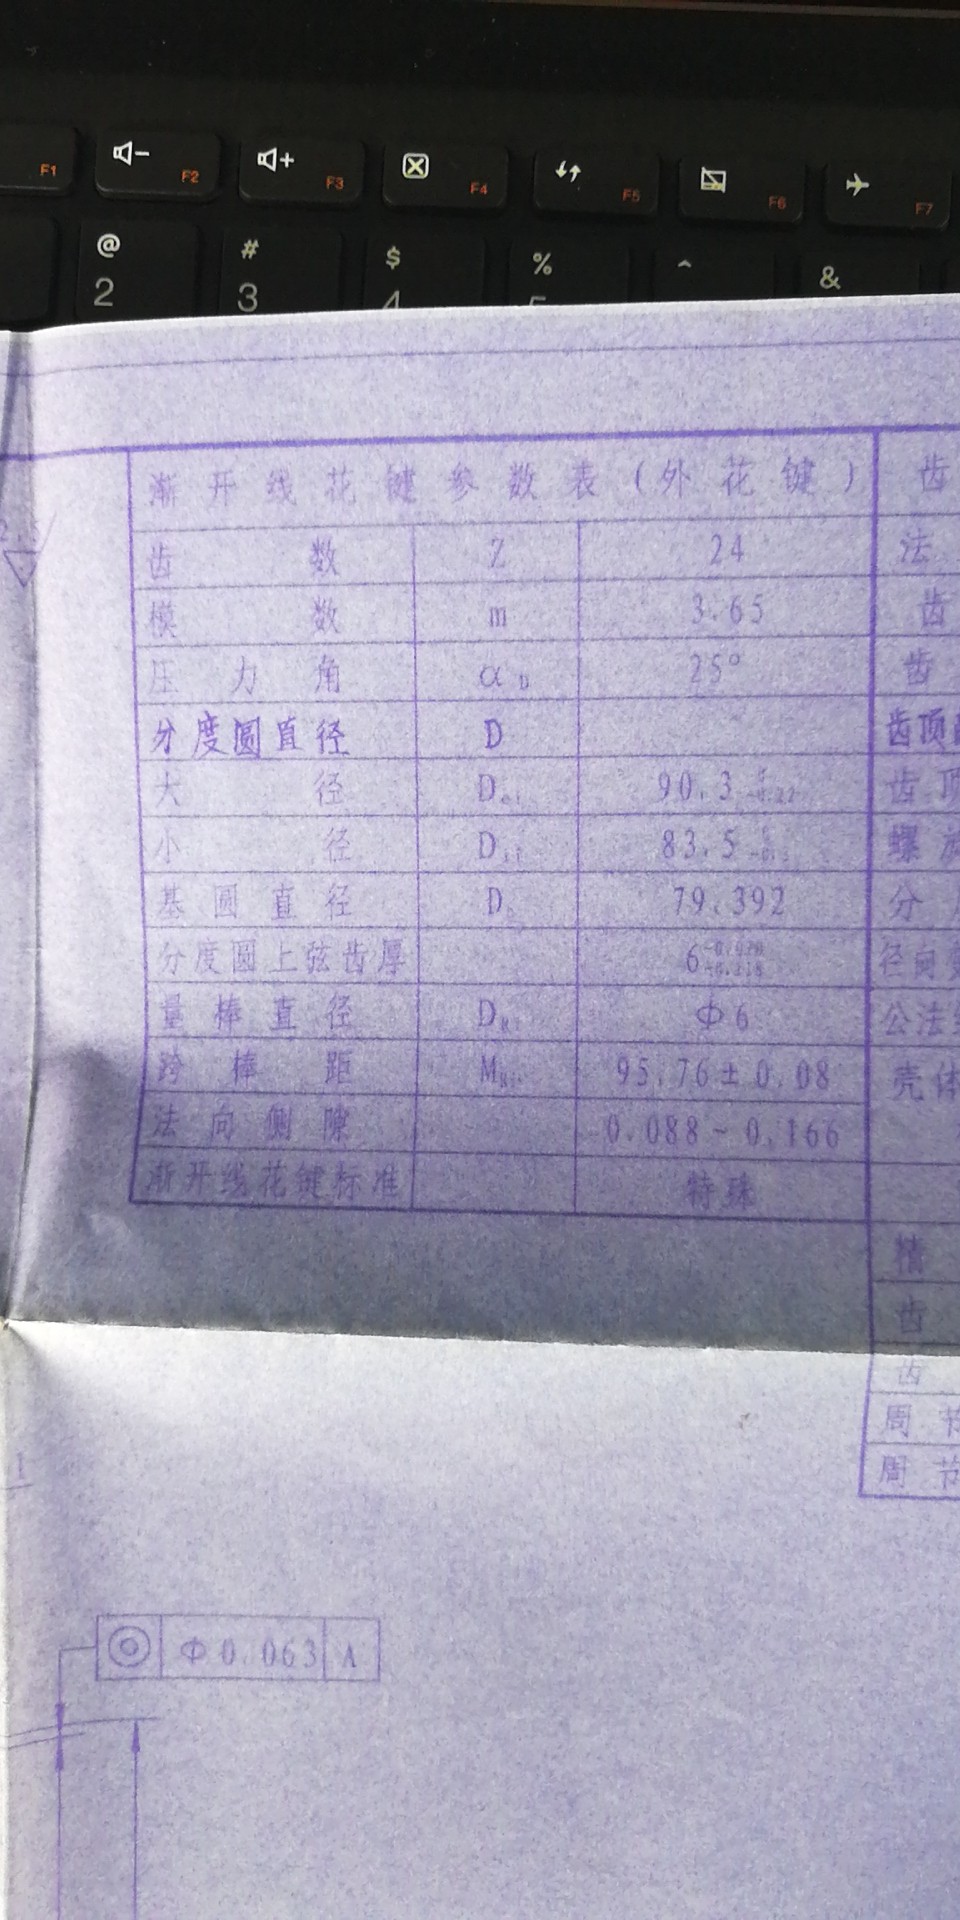 F1 F2 F3 F4 F5 F6 F7
@ # $ % ^ &
2 3 4 5
渐开线花键参数表(外花键) 齿
齿数 Z 24 法
模数 m 3.65 齿
压力角 αD 25° 齿
分度圆直径 D 齿顶
大径 90.3 齿顶
小径 83.5 螺
基圆直径 79.392 分
分度圆上弦齿厚 6 径向
量棒直径 Φ6 公法
跨棒距 95.76±0.08 壳体
法向侧隙 0.088~0.166
渐开线花键标准 特殊
精
齿
齿
周节
周节
1
◎ Φ0.063 A